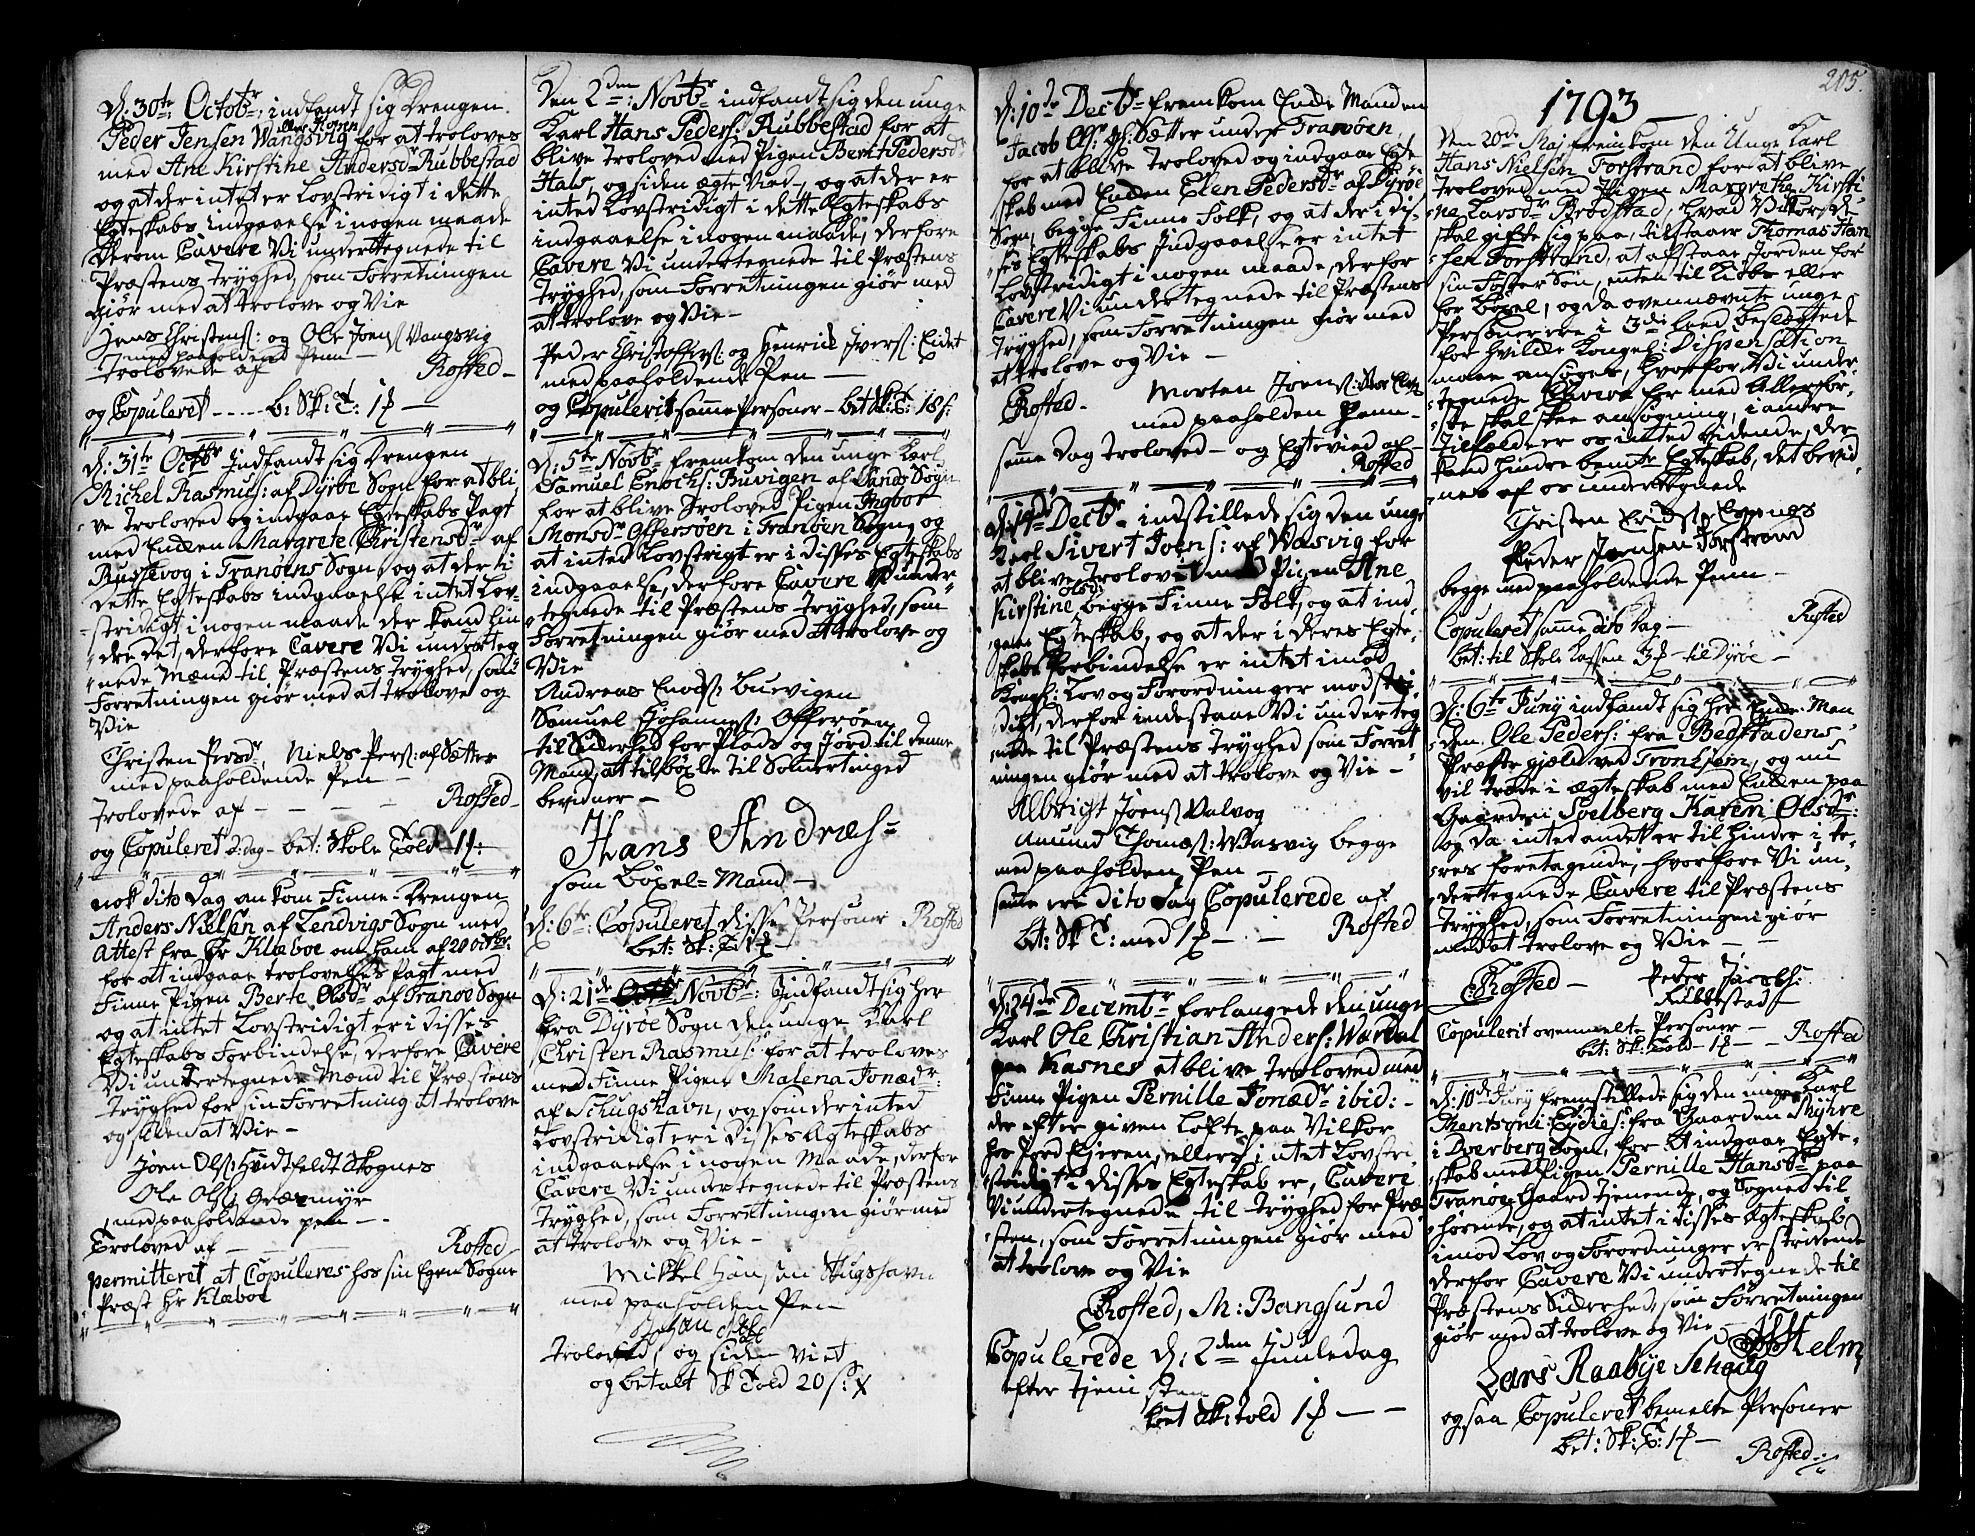 D: 30te Octobr: indfandt sig Drengen
Peder Jensen Wangsvig eller Kofren for at troloves
med Ane Kirstine Andersdr Rubbestad
og at der intet er Lovstridigt i dette
Egteskabs indgaaelse i nogen maade
Derom Cavere Vi underteggnede til
Præstens Tryghed, som Forretningen
giør med at trolove og Vie
Jens Christens: og Ole Joens Vangsvig
med paaholdend Penn —
Trolovede af Rofted —
og Copuleret - - - - b: Sk: T: 1 —
D: 31te Octbr Indfandt sig Drengen
Michel Rasmus: af Dyrøe Sogn for at bli
ve troloved og indgaae Egteskabs Pagt
med Enken Margrete Christensdr af
Russevog i Tranøens Sogn, og at der i
dette Egteskabs indgaaelse intet Lov-
stridigt i nogen maade der kand hin
dre det, derfore Cavere Vi underteg
nede Mænd til Præstens tryghed, som
Forretningen giør med at trolove og
Vie
Christen Persdr, Niels Pers: af Sætter
med paaholdende Pen —
Trolovede af — — — — Rofted —
og Copuleret 2: dag — bet: Skole Told — 1:
nok dito Dag ankom Finne-Drengen
Anders Nielsen af Lendvigs Sogn med
Attest fra Hr Klæboe om ham af 20 Octbr:
for at indgaae trolovelses Pagt med
Finne Pigen Berte Olsdr af Tranøe Sogn
og at intet Lovstridigt er i disses
Egteskabs Forbindelse, derfore Cavere
Vi undertegnede Mænd til Præstens
Tryghed for sin Forretning at trolove
og siden at Vie —
Joen Ols: Hvidtfeldt Skognes
Ole Ols: Græsmyr
med paaholdende pen —
Troloved af — Rofted —
permitteret at Copuleres hos sin Egen Sogne
Præst Hr Klæboe
Den 2den: Novbr indfandt sig den unge
Karl Hans Peders: Rubbestad for at
blive troloved med Pigen Berit Pedersd
Hals, og siden ægte Vied —, og at der er
inted Lovstridigt i dette Egteskabs
indgaaelse i nogen maade, derfore
Cavere Vi undertegnede til Præstens
Tryghed, som Forretningen giør med
at trolove og Vie —
Peder Christoffers: og Henrick Ivers: Eidet
med paaholdende Pen —
og Copulerit samme Personer — bet Sk: T: 18 s:
D: 5te Novbr fremkom den unge Karl
Samuel Enochs: Buvigen af Sands Sogn
for at blive Troloved Pigen Ingbor
Monsdr Offersøen i Tranøen Sogn, og
at inted Lovstrigt er i disses Egteskabs
indgaaelse, derfore Cavere Vi under
tegnede til Præstens Tryghed, som
Forretningen giør med at trolove og
Vie
Andreas Enochs: Buevigen
Samuel Johannes: Offersøen
til Siderhed for Plads og Jord til denne
Mand, at til böxle til Somertinged
bevidner —
Hans Andræs:
som Böxel = Mand —
D: 6te: Copuleret disse Personer Rofted
bet: Sk: T: 1 —
D: 21de Novbr: Indfandt sig her
fra Dyrøe Sogn den unge Karl
Christen Rasmus: for at troloves
med Finne Pigen Malena Jonædr:
af Schugshavn, og som der inted
Lovstridigt er i disses Ægteskabs
indgaaelse i nogen Maade, derfor
Cavere Vi undertegnede til Præstens
Tryghed, som Forretningen giør med
at trolove og Vie —
Mikkel Hansen Skugshavn
med paaholden Pen
Johan
Troloved, og siden Viet
og betalt Sk Told 20 s:
D: 10de Decbr fremkom Enke Manden
Jacob Ols: Sætter under Tranöen,
for at blive Troloved og indgaae Egte
skab med Enken Elen Pedersdr af Dyröe
Sogn, begge Finne Folk, og at der i dis-
ses Egteskabs Indgaaelse er intet
Lovstridigt i nogen maade, derfor
Cavere Vi undertegnede til Præstens
Tryghed, som Forretningen giør med
at trolove og Vie —
Rofted — Morten Joens:
med paaholden Penn —
samme Dag troloved — og Egteviede af —
Rofted
D: Decbr indstillede sig den unge
Karl Sivert Joens: af Wasvig for
at blive trolovet med Pigen Ane
Kirstine Olsdr begge Finne Folk, og at ind
gaae Egteskab, og at der i deres Egte-
skabs Forbindelse er intet imod
Kongl: Lov og Forordninger modstri
digt, derfor indestaae Vi underteg
nede til Præstens Tryghed som Forret
ningen giør med at trolove og Vie —
Albricht Joens Valvog
Amund Thomæs: Wasvig begge
med paaholden Pen —
samme ere dito dag Copulerede af
bet: Sk T: med 1 — — Rofted
D: 24de Decembr forlangede den unge
Karl Ole Christian Anders: Wardal
paa Kasnes at blive troloved med
Finne Pigen Pernille Jonædr ibid: —
der efter given Løfte paa Vilkor
hos Jord Ejeren, ellers intet Lovstri
stridigt i disses Egteskab er, Cavere
Vi undertegnede til tryghed for Præ
sten, som Forretningen giør med
at trolove og Vie
Rofted, M: Bangsund
Copulerede d: 2den Juuledag
efter Tjenisten
bet Sk: told 1 — —
205.
1793 —
Den 20de Maj fremkom den Unge Karl
Hans Nielsen Forstrand for at blive
troloved med Pigen Margrethe Kirsti
ne Larsdr Brodstad, hvad Vilkor de
skal gifte sig paa, tilstaaer Thomas Han
sen Forstrand, at afstaae Jorden for
sin Foster Søn, enten til Kiøbs eller
for Böxel, og da ovennævnte unge
Personer ere i 3die leed beslegtede
for hvilke Kongel: Dispensation
maae ansøges, hvorfor Vi under
tegnede Cavere for med Allerför-
ste skal skee ansøgning, i andre
tilfælde er os inted vidende, der
kand hindre bemte Egteskab, det bevid
nes af os undertegnede
Christen Espenæs
Peder Jensen Forstrand
begge med paaholdende Penn —
Copuleret samme dito Dag — Rofted
bet: til Skole Kassen 3 — til Dyröe —
D: 6te Juny indfandt sig her Enke Man
den Ole Peders: fra Begstadens
Præste gjæld ved Tronhjem, og nu
vil træde i ægteskab med Enken paa
Gaarden Solberg Karen Olsdr:
og da inted andet er til hinder i de-
res foretagende, hvorfore Vi un-
dertegnede Cavere til Præstens
Tryghed, som Forretningen giør
med at trolove og Vie — —
Rofted — Peder Jacobs:
Rubbestad —
Copulerit ovenmelte Personer — Rofted
bet: Sk: Told 1 —
D: 10de Juny fremstillede sig den unge Karl
Rentzoni Eydies: fra Gaarden Myhre
i Dverberg Sogn, for at indgaae Egte-
skab med Pigen Pernille Hansdr paa
Tranøe Gaard tjenende, og Sognet til
hørende, og at intet i disses Ægteskab
imod Lov og Forordninger er stridende
derfor Cavere Vi undertegnede til
Præstens Siderhed, som Forretningen
giør med at trolove og Vie —
Helm
Lars Raabÿe Schøug
og saa Copuleret bemelte Personer
bet: Sk: T: 1 —
Rofted —